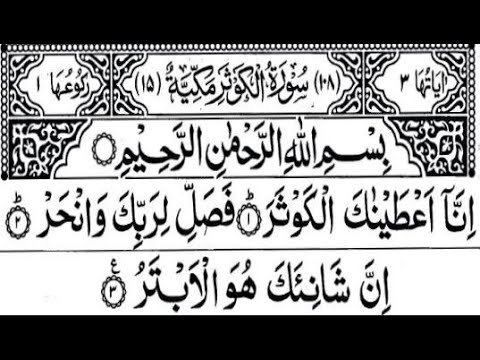 اٰیَاتُهَا ٣ (١٠٨) سُوْرَةُ الْكَوْثَرِ مَكِّيَّةٌ (١٥) رُكُوْعُهَا ١
بِسْمِ اللّٰهِ الرَّحْمٰنِ الرَّحِيْمِ
اِنَّاۤ اَعْطَيْنٰكَ الْكَوْثَرَ ؕ﴿١﴾ فَصَلِّ لِرَبِّكَ وَانْحَرْ ؕ﴿٢﴾
اِنَّ شَانِئَكَ هُوَ الْاَبْتَرُ ﴿٣﴾ ع